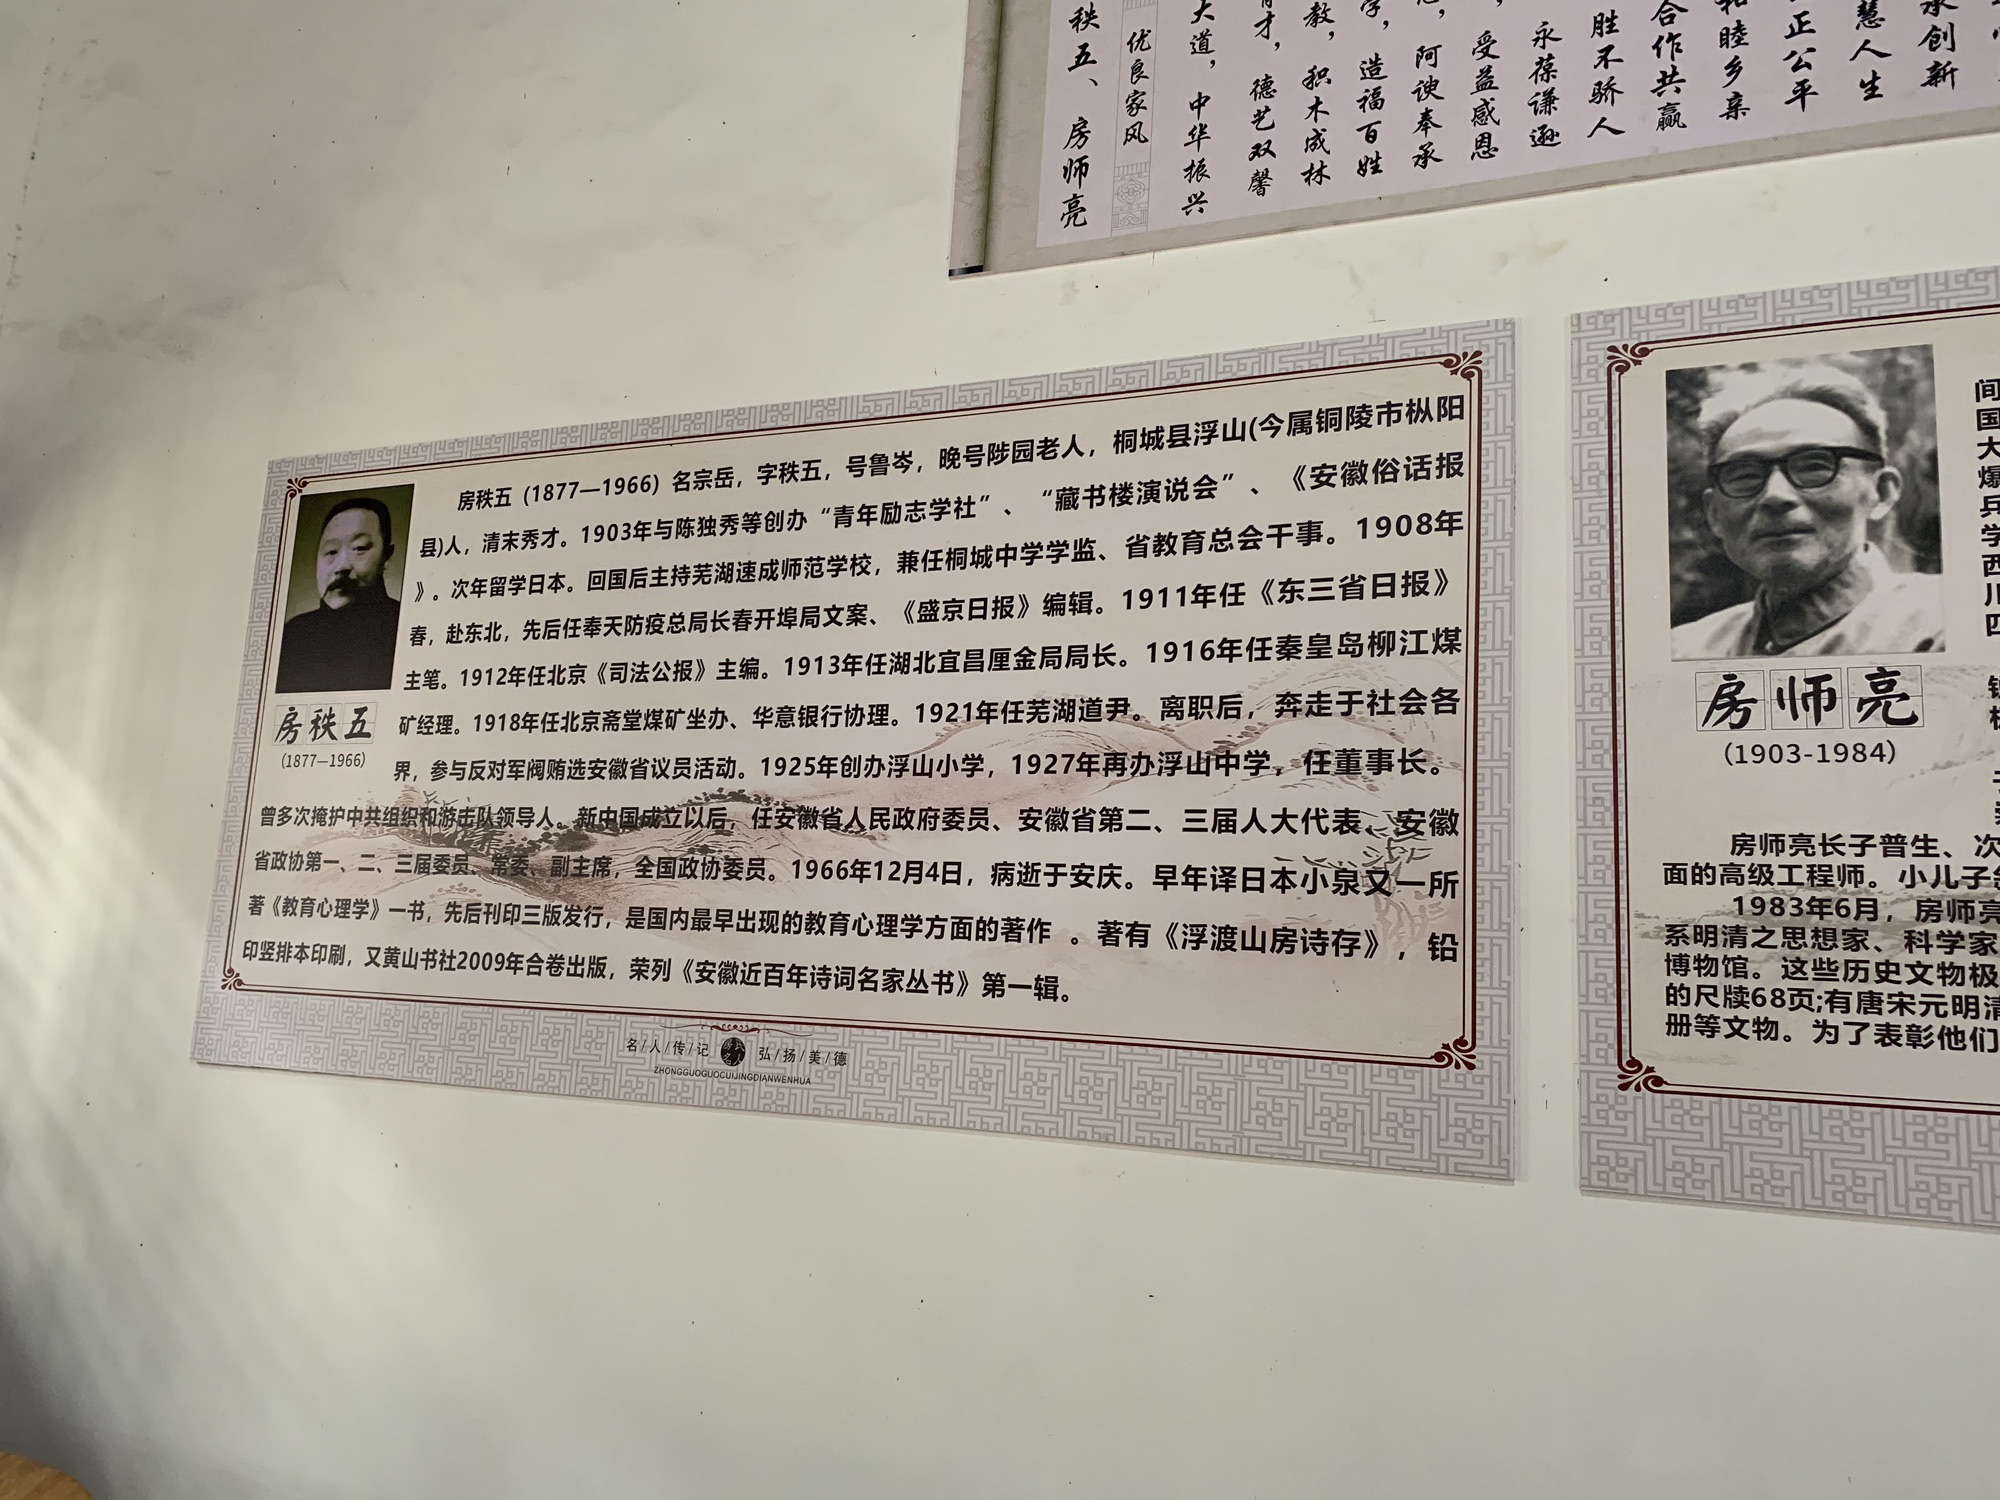 秩五、房师亮
优良家风
大道，中华振兴
育才，德艺双馨
教，积木成林
学，造福百姓
，阿谀奉承
，受益感恩
永葆谦逊
胜不骄人
合作共赢
和睦乡亲
正公平
慧人生
承创新
房秩五（1877—1966）名宗岳，字秩五，号鲁岑，晚号陟园老人，桐城县浮山(今属铜陵市枞阳
县)人，清末秀才。1903年与陈独秀等创办“青年励志学社”、“藏书楼演说会”、《安徽俗话报
》。次年留学日本。回国后主持芜湖速成师范学校，兼任桐城中学学监、省教育总会干事。1908年
春，赴东北，先后任奉天防疫总局长春开埠局文案、《盛京日报》编辑。1911年任《东三省日报》
主笔。1912年任北京《司法公报》主编。1913年任湖北宜昌厘金局局长。1916年任秦皇岛柳江煤
矿经理。1918年任北京斋堂煤矿坐办、华意银行协理。1921年任芜湖道尹。离职后，奔走于社会各
界，参与反对军阀贿选安徽省议员活动。1925年创办浮山小学，1927年再办浮山中学，任董事长。
曾多次掩护中共组织和游击队领导人。新中国成立以后，任安徽省人民政府委员、安徽省第二、三届人大代表、安徽
省政协第一、二、三届委员、常委、副主席，全国政协委员。1966年12月4日，病逝于安庆。早年译日本小泉又一所
著《教育心理学》一书，先后刊印三版发行，是国内最早出现的教育心理学方面的著作 。著有《浮渡山房诗存》，铅
印竖排本印刷，又黄山书社2009年合卷出版，荣列《安徽近百年诗词名家丛书》第一辑。
房秩五
(1877—1966)
名/人/传/记 弘/扬/美/德
ZHONGGUOGUOCUIJINGDIANWENHUA
房师亮
(1903-1984)
间
国
大
爆
兵
学
西
川
四
房师亮长子普生、次
面的高级工程师。小儿子
1983年6月，房师亮
系明清之思想家、科学家
博物馆。这些历史文物极
的尺牍68页;有唐宋元明清
册等文物。为了表彰他们